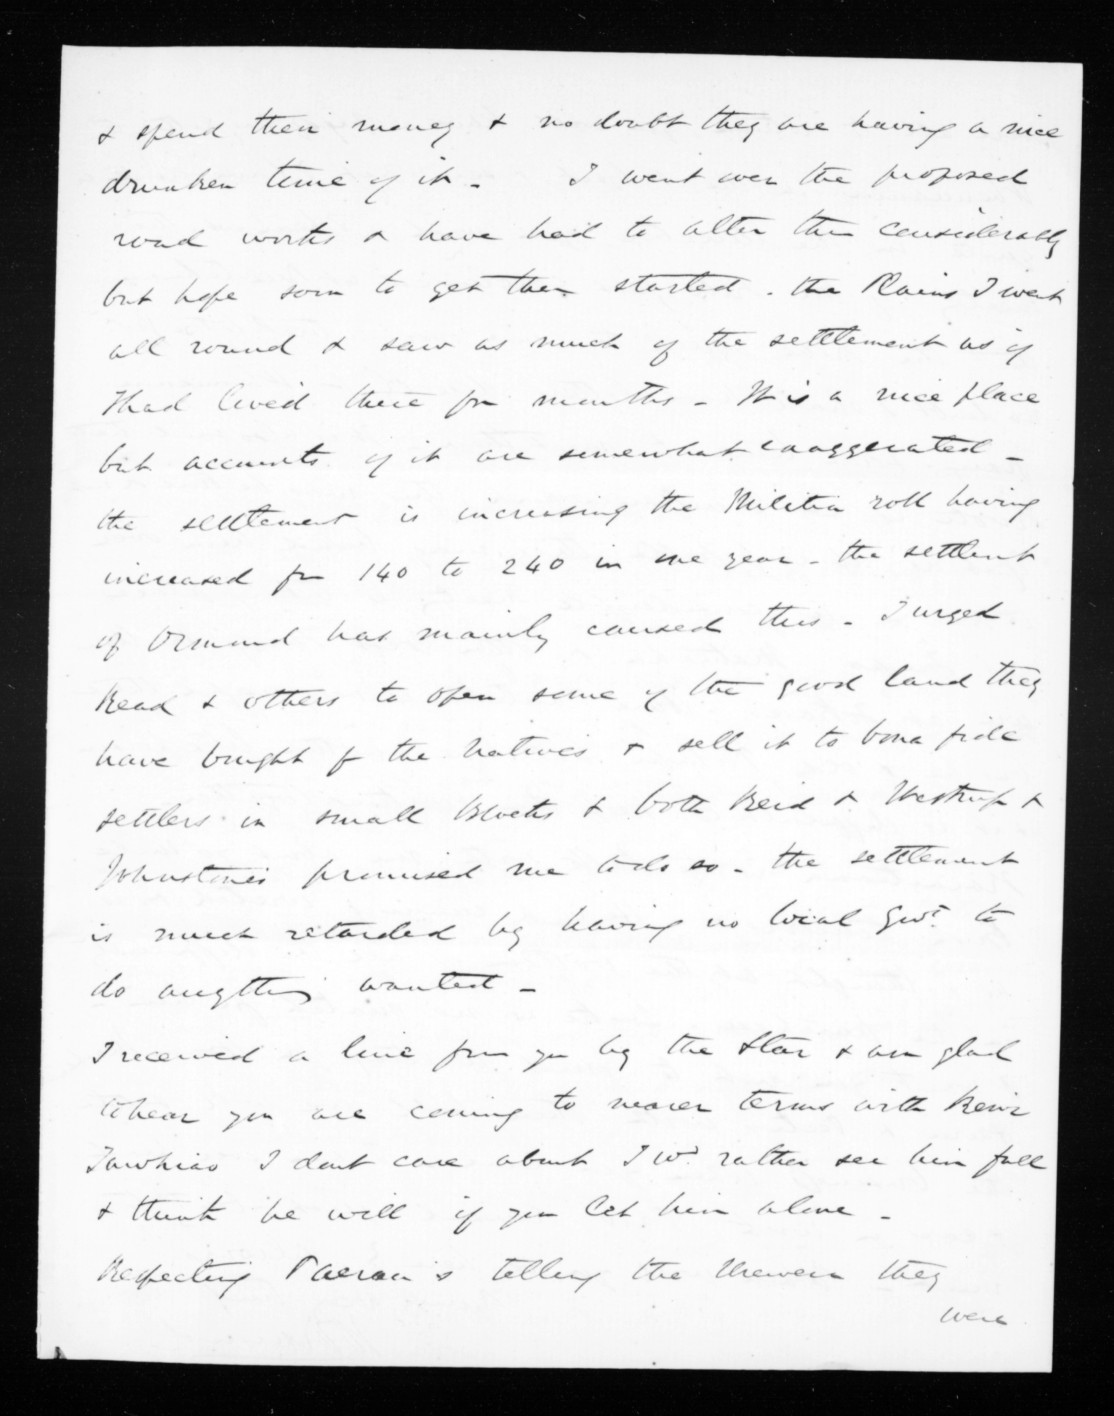 & spend their money & no doubt they are having a nice
drunken time of it - I went over the proposed
road works & have had to alter them considerably
but hope soon to get them started. the Plains I went
all round & saw as much of the settlement as if
I had lived there for months - It is a nice place
but accounts of it are somewhat exaggerated -
the settlement is increasing the Militia roll having
increased fm 140 to 240 in one year - the settlent
of Ormond has mainly caused this - I urged
Read & others to open some of the good land they
have bought f the Natives & sell it to bona fide
settlers in small blocks & both Reid & Westrup &
Johnstones promised me to do so - the settlement
is much retarded by having no local Govt. to
do anything wanted -
I received a line from you by the Star & am glad
to hear you are coming to nearer terms with Rewi
Tawhiao I dont care about I wd. rather see him fall
& think he will if you let him alone -
Respecting Paerau's telling the Urewera they
were